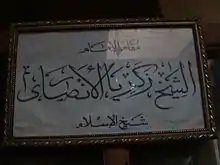 مقام الإمام
الشيخ زكريا الأنصارى
شيخ الإسلام